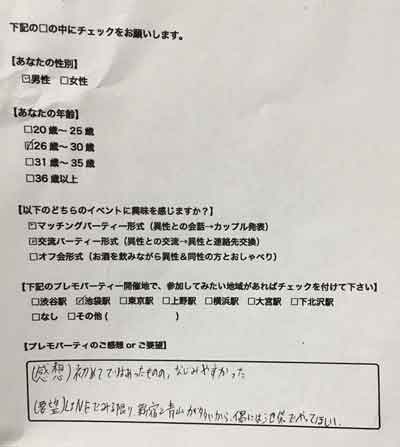 下記の□の中にチェックをお願いします。
【あなたの性別】
☑男性 □女性
【あなたの年齢】
□20歳〜25歳
☑26歳〜30歳
□31歳〜35歳
□36歳以上
【以下のどちらのイベントに興味を感じますか？】
☑マッチングパーティー形式（異性との会話→カップル発表）
☑交流パーティー形式（異性との交流→異性と連絡先交換）
□オフ会形式（お酒を飲みながら異性＆同性の方とおしゃべり）
【下記のプレモパーティー開催地で、参加してみたい地域があればチェックを付けて下さい】
□渋谷駅 ☑池袋駅 □東京駅 □上野駅 □横浜駅 □大宮駅 □下北沢駅
□なし □その他（ ）
【プレモパーティのご感想orご要望】
(感想) 初めてではあったものの、なじみやすかった
(要望) LINEでみる限り、新宿と青山が多いから、偶には池袋でやってほしい。